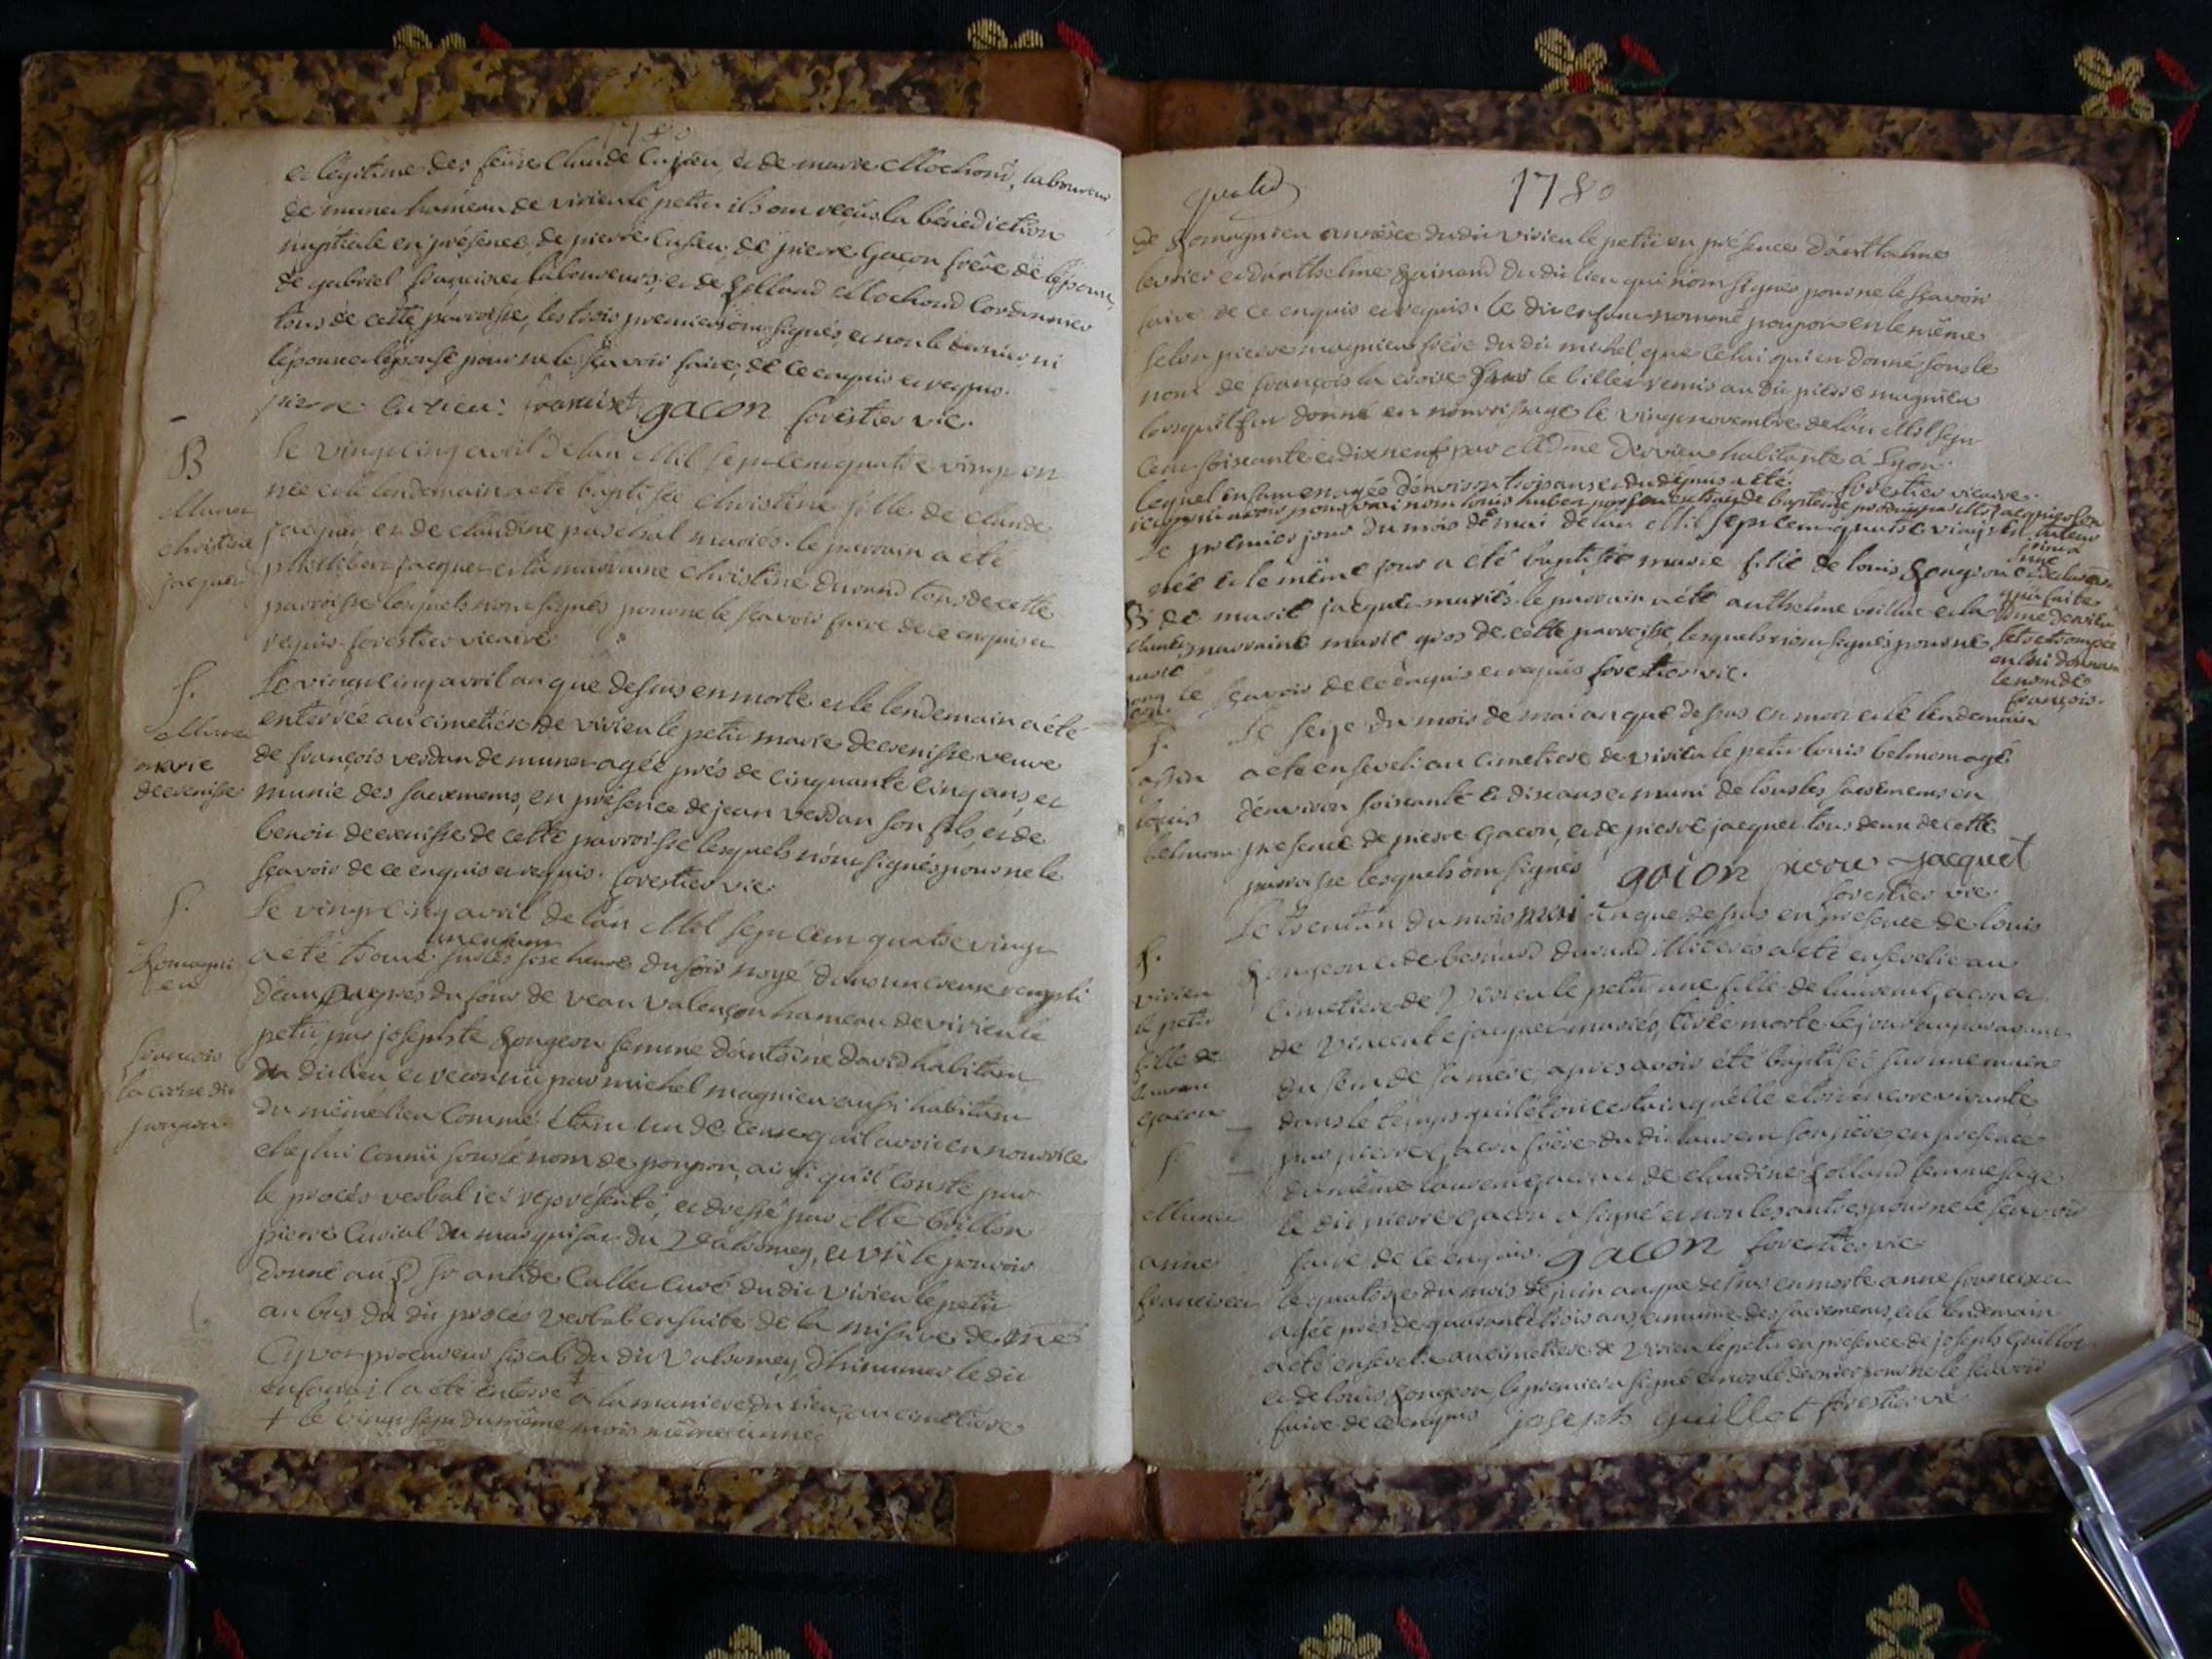 1780
et légitime des feus Claude Cujeu, et de marie Mochond, laboureur
de munet hameau de virieu le petit ils ont reçüs la bénédiction
nuptiale en présence, de pierre de pierre Gaçon frère de l'épouse,
de gabriel franciset laboureurs; et de Mochond Cordonnier
tous de cette parroisse, les trois premiers ont signés et non le dernier, ni
l'époux et l'épouse pour ne le sçavoir faire, de ce enquis et requis.
pierre francisét gacon forestier vic.
B
Munet
Christine
jacquet
le vingt cinq avril de l'an Mil sept cent quatre vingt est
née et le lendemain a été baptisée Christine fille de Claude
jacquet et de claudine paschal mariés. le parrain a été
philibert jacquet et la marraine Christine durand tous de cette
parroisse lesquels n'ont signés pour ne le sçavoir faire de ce enquis et
requis. forestier vicaire
f.
Munet
marie
decrenisse
Le vingt cinq avril an que dessus est morte et le lendemain a été
enterrée au cimetiére de virieu le petit marie decrenisse veuve
de françois verdan de munet agée prés de cinquante cinq ans et
munie des sacremens, en présence de jean verdan son fils, et de
benoit decrenisse de cette parroisse lesquels n'ont signés pour ne le
sçavoir de ce enquis et requis. forestier vic
f.
Romagni
eu
françois
la croix dit
poupon
Le vingt cinq avril de l'an Mil sept cent quatre vingt
un enfant
a été trouvé sur les sixe heures du soir noyé dans un creux rempli
d'eau auprès du four de veau valençon hameau de virieu le
petit par josephte Rongeon femme d'antoine david habitant
du dit lieu et reconnüe par michel magnieu aussi habitant
du même lieu Comme étant un de ceux qu'il avoit en nourrice
chés lui Connü sous le nom de poupon, ainsi qu'il conste par
le procés verbal ici représenté, et dressé par Me brillon
pierre Curial du marquisat du Valromey, et vû le pouvoir
donné au Sr Callet Curé du dit virieu le petit
au bas du dit procés verbal ensuite de la missive de me
procureur fiscal du dit Valromey, d'hinumer le dit
enfant, il a été enterré + a la maniere du lieu, au cimetière
+ le vingt sept du même mois même année
1780
de Romagnieu annéxe du dit virieu le petit en présence d'anthelme
berrier et d'anthelme Rainand du dit lieu qui n'ont signés pour ne le sçavoir
faire de ce enquis et requis. le dit enfant nommé poupon est le même
selon pierre magnieu frère du dit michel que celui qui est donné sous le
nom de françois la croix dans le billet remis au dit pierre magnieu
lorsqu'il fut donné en nourrissage le vingt novembre de l'an Mil sept
cent soixante et dix neuf par Mdme Dervieu habitante à Lyon.
lequel enfant est agée d'environ trois ans et du dépuis a été forestier vicaire.
Le premier jour du mois de mai de l'an Mil sept cent quatre vingt est
née et le même jour a été baptisée marie fille de louis Rongeon
B et de marie jacquet mariés. le parrain a été anthelme brillat et la
marraine marie gros de cette parroisse, lesquels n'ont signés pour ne
le sçavoir de ce enquis et requis forestier vic.
Dme Dervieu
s'etoit trompée
en lui donnant
le nom de
françois.
f.
assin
louis
belmont
Le seize du mois de mai an que dessus est mort et le lendemain
a été enseveli au cimetiere de virieu le petit louis belmont agé
d'environ soixante et dix ans et muni de tous les sacremens en
présence de pierre Gacon, et de pierre jacquet tous deux de cette
parroisse lesquels ont signés gacon pierre jacquet
forestier vic
f.
virieu
le petit
fille de
laurent
gacon
Le trentun du mois mai an que dessus en présence de louis
Rongeon et de bernard durand illiterés a été ensevelie au
cimetiere de Virieu le petit une fille de laurent Gacon et
de Vincente jacquet mariés, tirée morte le jour auparavant
du sein de sa mére, apres avoir été baptisée sur une main
dans le temps qu'il etoit certain qu'elle etoit encore vivante
par pierre Gacon frère du dit laurent son pere en présence
du même laurent gacon et de claudine Rolland femme sage
le dit pierre gacon a signé et non les autres pour ne le sçavoir
faire, de ce enquis. gacon forestier vic
f
Munet
anne
franciset
le quatorze du mois de juin an que dessus est morte anne francixet
agée prés de quarante trois ans, et munie des sacremens, et le lendemain
a été ensevelie au cimetiere de Virieu le petit en présence de joseph Guillot
et de louis Rongeon, le premier a signé et non le dernier pour ne le sçavoir
faire de ce enquis joseph guillot forestier vic